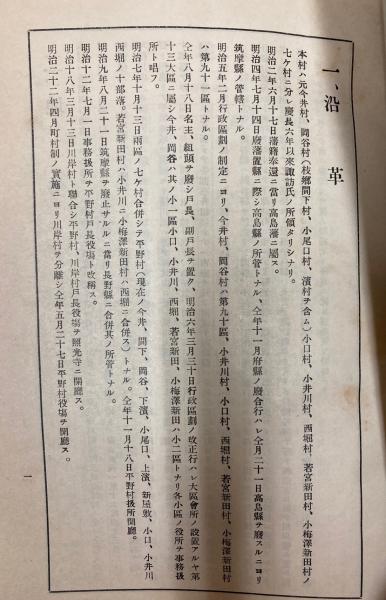 一、沿革
本村ハ元今井村、岡谷村（枝郷間下村、小尾口村、濱村ヲ含ム）小口村、小井川村、西堀村、若宮新田村、小梅澤新田村ノ
七ケ村ニ分レ慶長六年以來諏訪氏ノ所領タリシナリ。
明治二年六月十七日藩籍奉還ニ當リ高島藩ニ屬ス。
明治四年七月十四日廢藩置縣ニ際シ高島縣ノ所管トナル、仝年十一月府縣ノ廢合行ハレ仝月二十一日高島縣ヲ廢スルニヨリ
筑摩縣ノ管轄トナル。
明治五年二月行政區劃ノ制定ニヨリ、今井村、岡谷村ハ第九十區、小井川村、小口村、西堀村、若宮新田村、小梅澤新田村
ハ第九十一區トナル。
仝年八月十八日名主、組頭ヲ廢シ戸長、副戸長ヲ置ク、明治六年三月三十日行政區劃ノ改正行ハレ大區會所ノ設置アルヤ第
十三大區ニ屬シ今井、岡谷ハ共ノ小一區小口、小井川、西堀、若宮新田、小梅澤新田ハ小二區トナリ各小區ノ役所ヲ事務扱
所ト唱フ。
明治七年十月十三日兩區ノ七ケ村合併シテ平野村（現在ノ今井、間下、岡谷、下濱、小尾口、上濱、新屋敷、小口、小井川
西堀ノ十部落。若宮新田村ハ小井川ニ小梅澤新田村ハ西堀ニ合併ス）トナル。仝年十一月十八日平野村扱所開廳。
明治九年八月二十一日筑摩縣ヲ廢止サルルニ當リ長野縣ニ合併其ノ所管トナル。
明治十二年七月一日事務扱所ヲ平野村戸長役場ト改稱ス。
明治十八年三月十三日川岸村ト聯合シ平野村、川岸村戸長役場ヲ照光寺ニ開廳ス。
明治二十二年四月町村制ノ實施ニヨリ川岸村ヲ分離シ仝年五月二十七日平野村役場ヲ開廳ス。
一